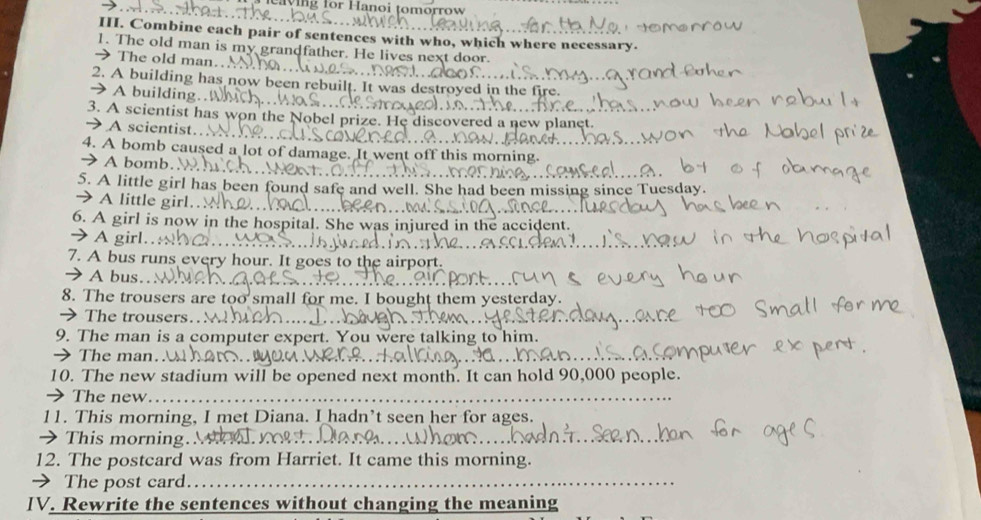 leaving for Hanoi tomorrow
→ is that the bus which leaving for Ha No. tomorrow
III. Combine each pair of sentences with who, which where necessary.
1. The old man is my grandfather. He lives next door.
→ The old man Who lives next door is my grand father
2. A building has now been rebuilt. It was destroyed in the fire.
→ A building which was destroyed in the fire has now been rebuilt
3. A scientist has won the Nobel prize. He discovered a new planet.
→ A scientist who discovered a new planet has won the Nobel prize
4. A bomb caused a lot of damage. It went off this morning.
→ A bomb which went off this morning caused a lot of damage
5. A little girl has been found safe and well. She had been missing since Tuesday.
→ A little girl who had been missing since Tuesday has been ...
6. A girl is now in the hospital. She was injured in the accident.
→ A girl who was injured in the accident is now in the hospital
7. A bus runs every hour. It goes to the airport.
→ A bus which goes to the airport runs every hour
8. The trousers are too small for me. I bought them yesterday.
→ The trousers which I bough them yesterday are too small for me
9. The man is a computer expert. You were talking to him.
→ The man whom you were talking to man is a computer expert.
10. The new stadium will be opened next month. It can hold 90,000 people.
→ The new
11. This morning, I met Diana. I hadn't seen her for ages.
→ This morning I met Diana whom hadn't seen her for ages
12. The postcard was from Harriet. It came this morning.
→ The post card
IV. Rewrite the sentences without changing the meaning